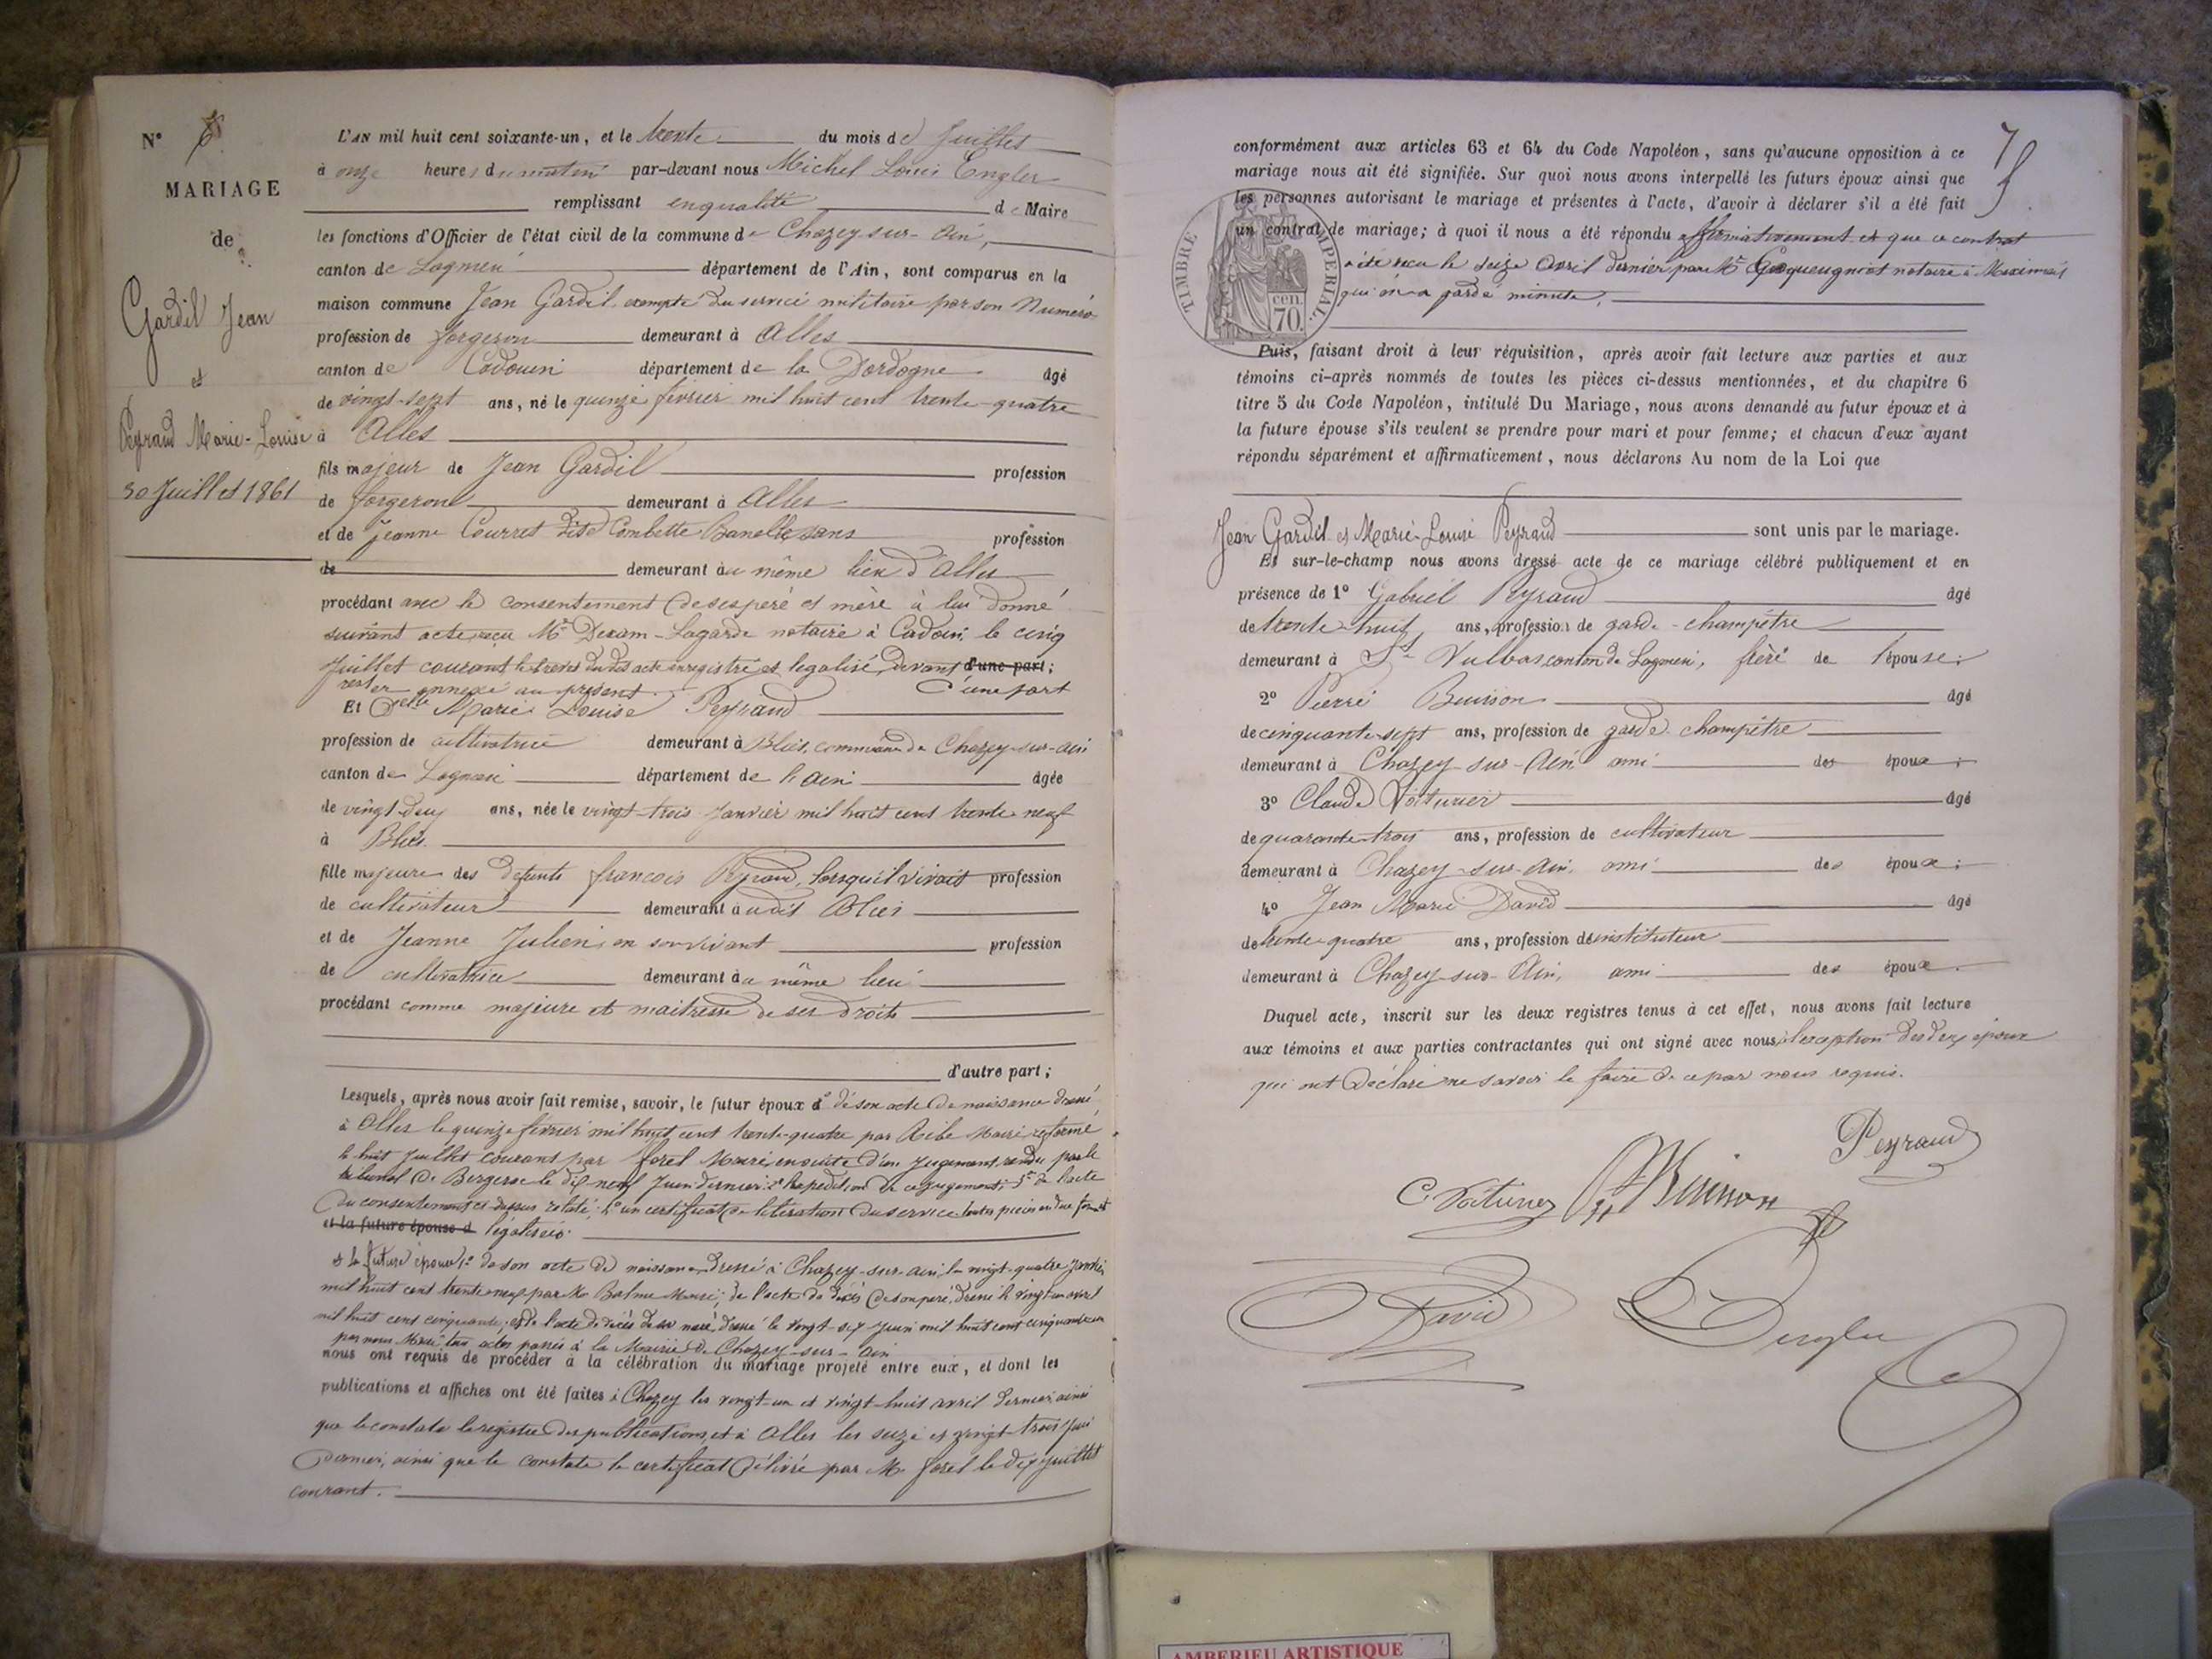 N° 
MARIAGE
de
Gardil Jean
et
Peyraud Marie-Louise
30 Juillet 1861
L'AN mil huit cent soixante-un, et le trente du mois de Juillet
à onze heures du matin par-devant nous Michel Louis Engler
remplissant en qualité de Maire
les fonctions d'Officier de l'état civil de la commune de Chazey-sur-Ain,
canton de Lagnieu département de l'Ain, sont comparus en la
maison commune Jean Gardil exempté du service militaire par son Numéro
profession de forgeron demeurant à Alles
canton de Cadouin département de la Dordogne âgé
de vingt-sept ans, né le quinze février mil huit cent trente-quatre
à Alles
fils majeur de Jean Gardil profession
de forgeron demeurant à Alles
et de Jeanne Courret dite Combette sans profession
de demeurant au même lieu d'Alles
procédant avec le consentement de ses père et mère à lui donné
suivant acte reçu Me Dexam-Lagarde notaire à Cadouin le cinq
Juillet courant, le brevet dudit acte enregistré et légalisé, devant d'une part;
rester annexé au présent. d'une part
Et Delle Marie Louise Peyraud
profession de cultivatrice demeurant à Blies, commune de Chazey-sur-Ain
canton de Lagnieu département de l'Ain âgée
de vingt-deux ans, née le vingt-trois Janvier mil huit cent trente-neuf
à Blies
fille majeure des défunts françois Peyraud, lorsqu'il vivait profession
de cultivateur demeurant audit Blies
et de Jeanne Julien, en son vivant profession
de cultivatrice demeurant au même lieu
procédant comme majeure et maitresse de ses droits
d'autre part;
Lesquels, après nous avoir fait remise, savoir, le futur époux d 1° de son acte de naissance dressé
à Alles le quinze février mil huit cent trente-quatre par Ribe Maire, réformé
le huit Juillet courant par forel Maire, ensuite d'un Jugement rendu par le
tribunal de Bergerac le dix neuf Juin dernier; 2° l'expédition de ce jugement; 3° de l'acte
du consentement ci-dessus relaté; 4° un certificat de libération du service, toutes pièces en due forme et
et la future épouse d légalisées.
et la future épouse 1° de son acte de naissance dressé à Chazey-sur-Ain, le vingt-quatre Janvier
mil huit cent trente neuf par Mr Balme Maire; de l'acte de décès de son père, dressé le vingt-un avril
mil huit cent cinquante; et de l'acte de décès de sa mère, dressé le vingt-six Juin mil huit cent cinquante
par nous Maire tous actes passés à la Mairie de Chazey-sur-Ain
nous ont requis de procéder à la célébration du mariage projeté entre eux, et dont les
publications et affiches ont été faites à Chazey les vingt-un et vingt-huit avril dernier, ainsi
que le constate le registre des publications, et à Alles les seize et vingt-trois Juin
dernier, ainsi que le constate le certificat délivré par M. forel le dix Juillet
courant.
7
conformément aux articles 63 et 64 du Code Napoléon, sans qu'aucune opposition à ce
mariage nous ait été signifiée. Sur quoi nous avons interpellé les futurs époux ainsi que
les personnes autorisant le mariage et présentes à l'acte, d'avoir à déclarer s'il a été fait
un contrat de mariage; à quoi il nous a été répondu affirmativement et que ce contrat
a été reçu le seize Avril dernier par Me notaire à Meximieux
qui en a gardé minute,
TIMBRE IMPERIAL
cen.
70.
Puis, faisant droit à leur réquisition, après avoir fait lecture aux parties et aux
témoins ci-après nommés de toutes les pièces ci-dessus mentionnées, et du chapitre 6
titre 5 du Code Napoléon, intitulé Du Mariage, nous avons demandé au futur époux et à
la future épouse s'ils veulent se prendre pour mari et pour femme; et chacun d'eux ayant
répondu séparément et affirmativement, nous déclarons Au nom de la Loi que
Jean Gardil et Marie-Louise Peyraud sont unis par le mariage.
Et sur-le-champ nous avons dressé acte de ce mariage célébré publiquement et en
présence de 1° Gabriel Peyraud âgé
de trente-huit ans, profession de garde-champêtre
demeurant à St Vulbas, canton de Lagnieu, frère de l'épouse;
2° Pierre Buisson âgé
de cinquante-sept ans, profession de garde champêtre
demeurant à Chazey-sur-Ain ami des époux;
3° Claude Voiturier âgé
de quarante-trois ans, profession de cultivateur
demeurant à Chazey-sur-Ain, ami des époux;
4° Jean Marie David âgé
de trente-quatre ans, profession d'instituteur
demeurant à Chazey-sur-Ain, ami des époux.
Duquel acte, inscrit sur les deux registres tenus à cet effet, nous avons fait lecture
aux témoins et aux parties contractantes qui ont signé avec nous, à l'exception des deux époux
qui ont déclaré ne savoir le faire de ce par nous requis.
Peyraud
C Voiturier Buisson
David Engler
AMBERIEU ARTISTIQUE